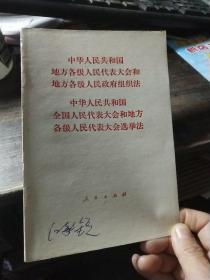 中华人民共和国
地方各级人民代表大会和
地方各级人民政府组织法
中华人民共和国
全国人民代表大会和地方
各级人民代表大会选举法
人民出版社